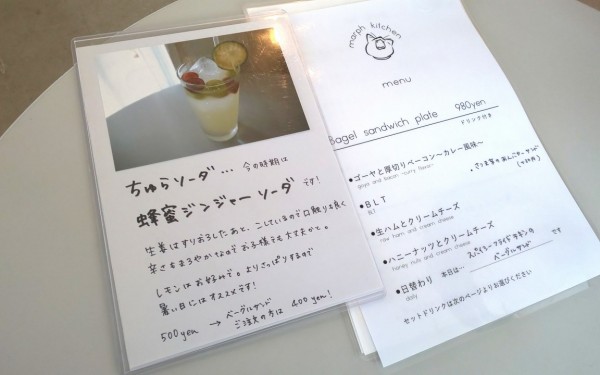 ちゅらソーダ… 今の時期は
蜂蜜ジンジャーソーダです!
生姜はすりおろしたあと、こしているので口触りも良く
辛さもまろやかなのでお子様でも大丈夫かと。
レモンはお好みで。よりさっぱりするので
暑い日にはオススメです!
500yen → ベーグルサンド
ご注文の方は 400yen!
morph kitchen
menu
Bagel sandwich plate 980yen
ドリンク付き
●ゴーヤと厚切りベーコン〜カレー風味〜
goya and bacon -curry flavor-
●BLT
BLT
●生ハムとクリームチーズ
raw ham and cream cheese
●ハニーナッツとクリームチーズ
honey nuts and cream cheese
●日替わり 本日は… スパイシーフライドチキンの
ベーグルサンド です
daily
セットドリンクは次のページよりお選びください